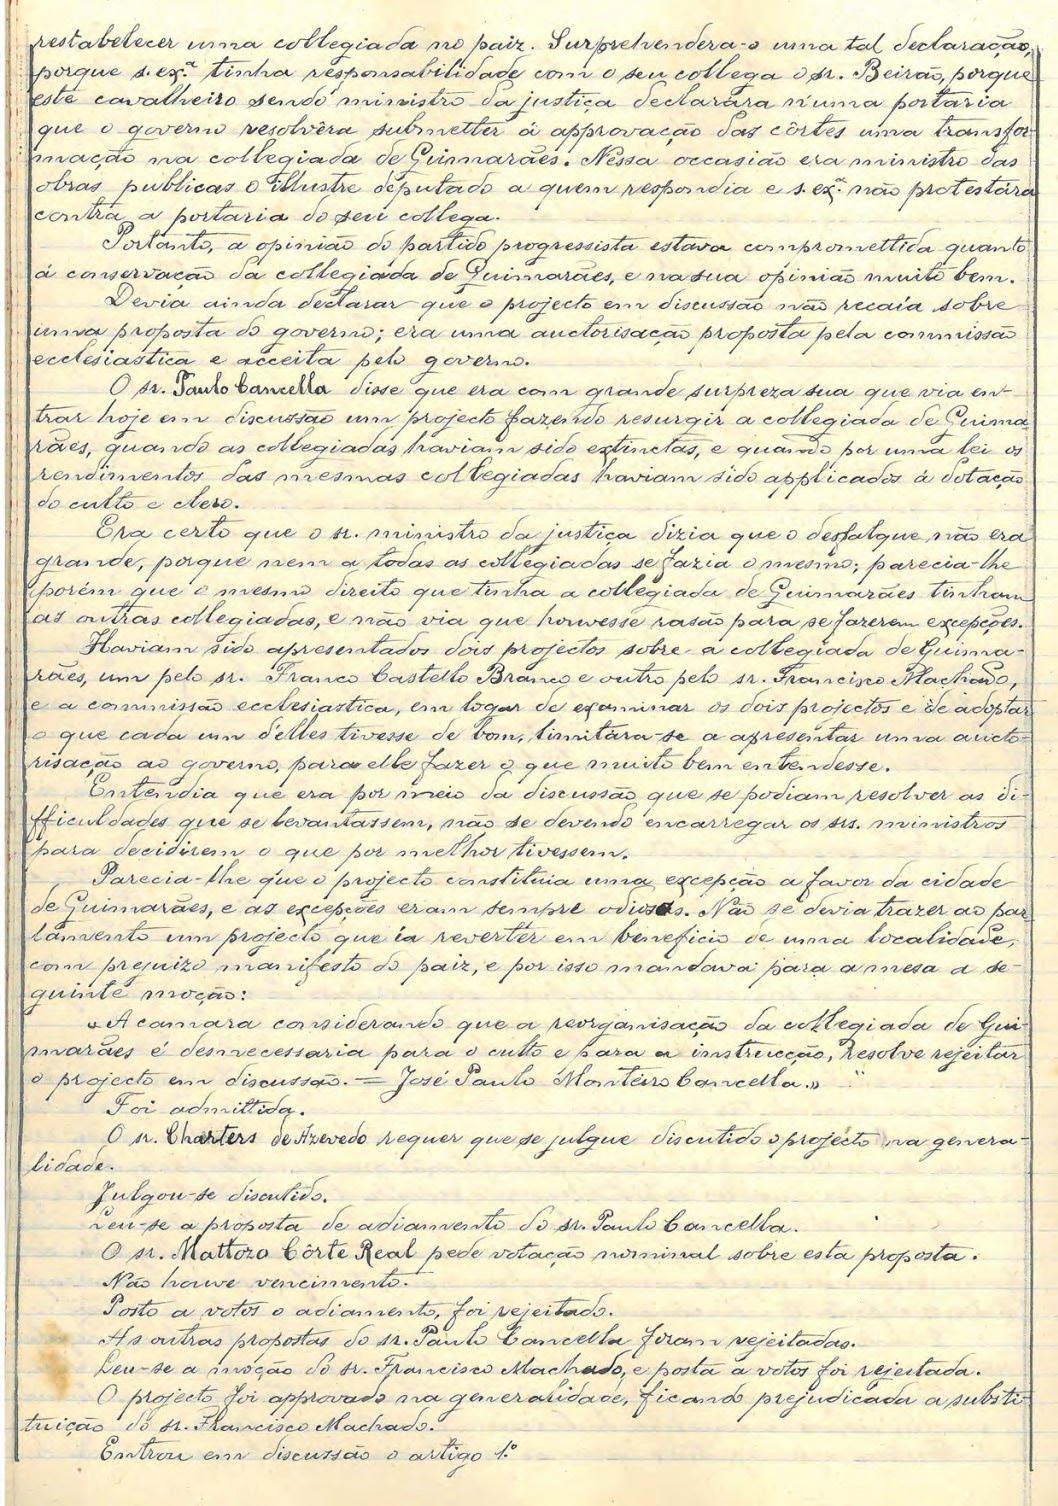 restabelecer uma collegiada no paiz. Surprehendera-o uma tal declaração,
porque s. ex.ª tinha responsabilidade com o seu collega o sr. Beirão, porque
este cavalheiro sendo ministro da justiça declarára n'uma portaria
que o governo resolvêra submetter á approvação das côrtes uma transfor-
mação na collegiada de Guimarães. Nessa occasião era ministro das
obras publicas o illustre deputado a quem respondia e s. ex.ª não protestára
contra a portaria do seu collega.
Portanto, a opinião do partido progressista estava compromettida quanto
á conservação da collegiada de Guimarães, e na sua opinião muito bem.
Devia ainda declarar que o projecto em discussão não recaía sobre
uma proposta do governo; era uma auctorisação proposta pela commissão
ecclesiastica e acceita pelo governo.
O sr. Paulo Cancella disse que era com grande surpreza sua que via en-
trar hoje em discussão um projecto fazendo resurgir a collegiada de Guima-
rães, quando as collegiadas haviam sido extinctas, e quando por uma lei os
rendimentos das mesmas collegiadas haviam sido applicados á dotação
do culto e clero.
Era certo que o sr. ministro da justiça dizia que o desfalque não era
grande, porque nem a todas as collegiadas se fazia o mesmo; parecia-lhe
porém que o mesmo direito que tinha a collegiada de Guimarães tinham
as outras collegiadas, e não via que houvesse rasão para se fazerem excepções.
Haviam sido apresentados dois projectos sobre a collegiada de Guima-
rães, um pelo sr. Franco Castello Branco e outro pelo sr. Francisco Machado,
e a commissão ecclesiastica, em logar de examinar os dois projectos e de adoptar
o que cada um d'elles tivesse de bom, limitára-se a apresentar uma aucto-
risação ao governo, para elle fazer o que muito bem entendesse.
Entendia que era por meio da discussão que se podiam resolver as di-
fficuldades que se levantassem, não se devendo encarregar os srs. ministros
para decidirem o que por melhor tivessem.
Parecia-lhe que o projecto constituia uma excepção a favor da cidade
de Guimarães, e as excepções eram sempre odiosas. Não se devia trazer ao par
lamento um projecto que ia reverter em beneficio de uma localidade,
com prejuizo manifesto do paiz, e por isso mandava para a mesa a se-
guinte moção:
«A camara considerando que a reorganisação da collegiada de Gui-
marães é desnecessaria para o culto e para a instrucção, resolve rejeitar
o projecto em discussão. = José Paulo Monteiro Cancella.»
Foi admittida.
O sr. Charters de Azevedo requer que se julgue discutido o projecto na genera-
lidade.
Julgou-se discutido.
Leu-se a proposta de adiamento do sr. Paulo Cancella.
O sr. Mattozo Côrte Real pede votação nominal sobre esta proposta.
Não houve vencimento.
Posto a votos o adiamento, foi rejeitado.
As outras propostas do sr. Paulo Cancella foram rejeitadas.
Leu-se a moção do sr. Francisco Machado, e posta a votos foi rejeitada.
O projecto foi approvado na generalidade, ficando prejudicada a substi-
tuição do sr. Francisco Machado.
Entrou em discussão o artigo 1.º